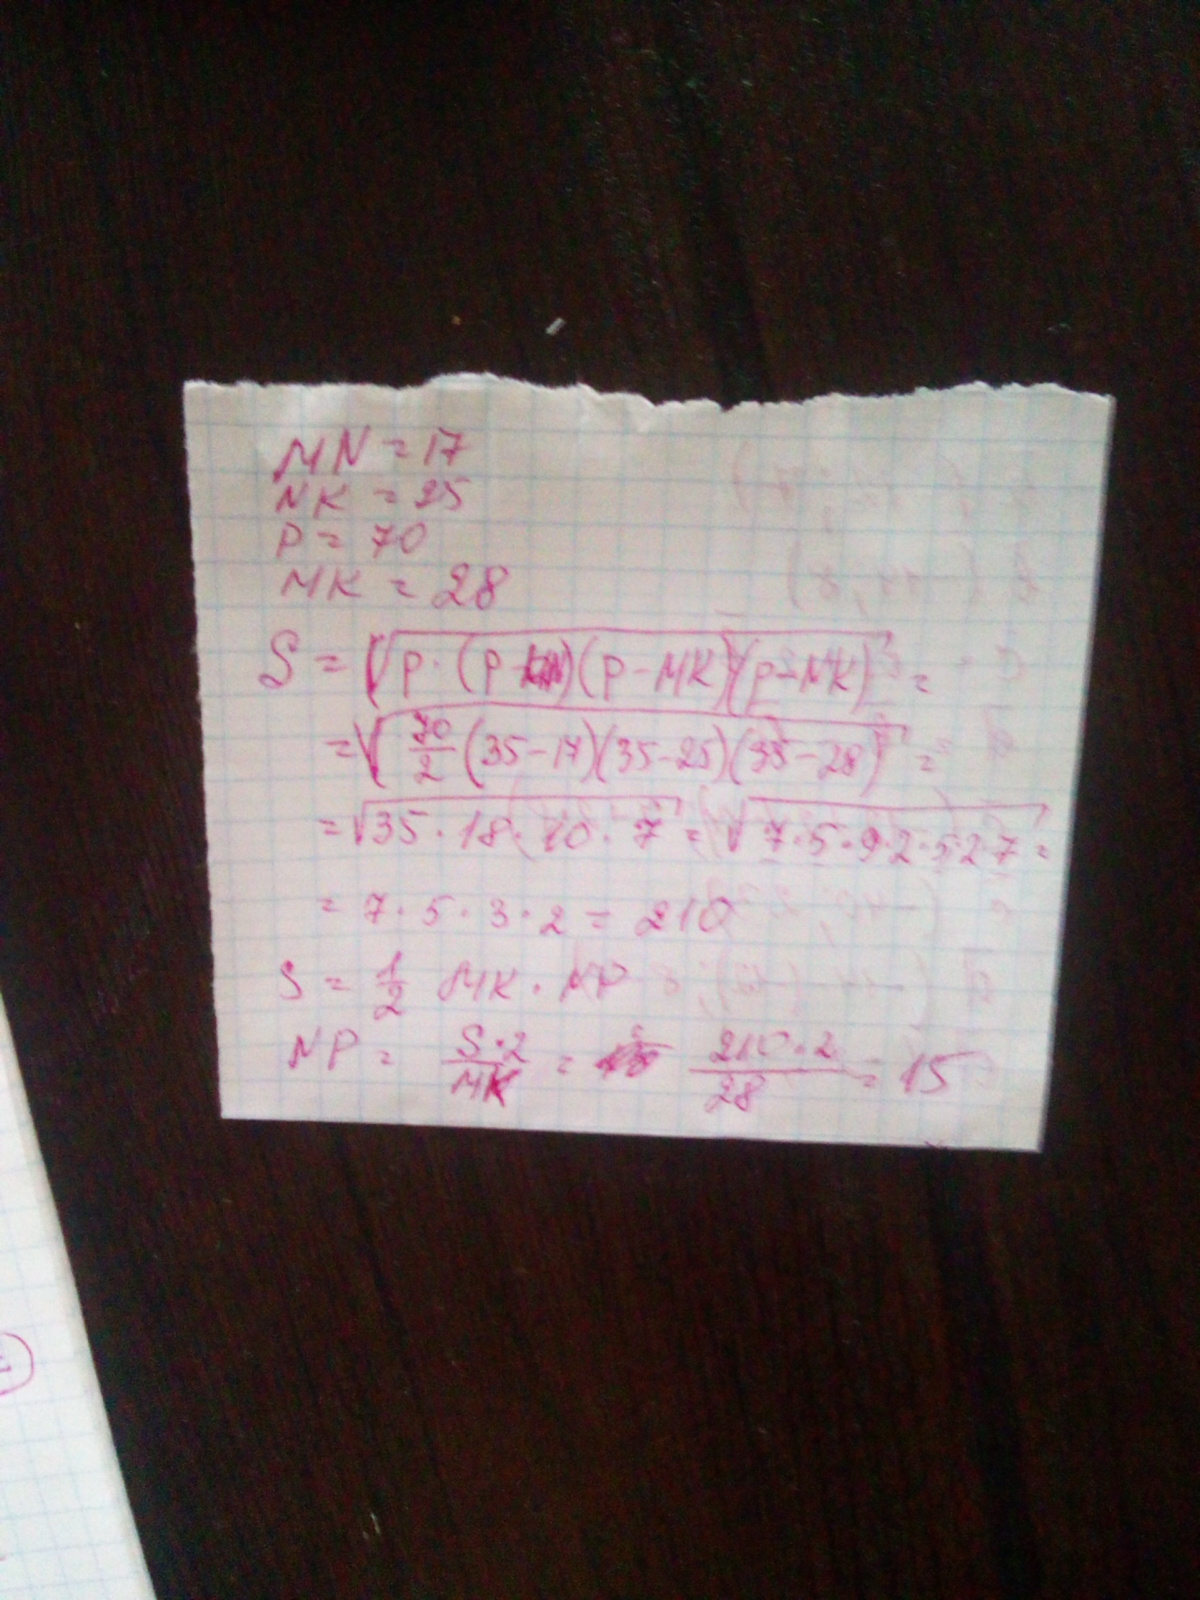 MN = 17
NK = 25
P = 70
MK = 28
S = √(p · (p - MN)(p - MK)(p - NK)) =
= √(70/2 (35-17)(35-25)(35-28)) =
= √(35 · 18 · 10 · 7) = √(7 · 5 · 9 · 2 · 5 · 2 · 7) =
= 7 · 5 · 3 · 2 = 210
S = 1/2 MK · NP
NP = S·2/MK = 210·2/28 = 15